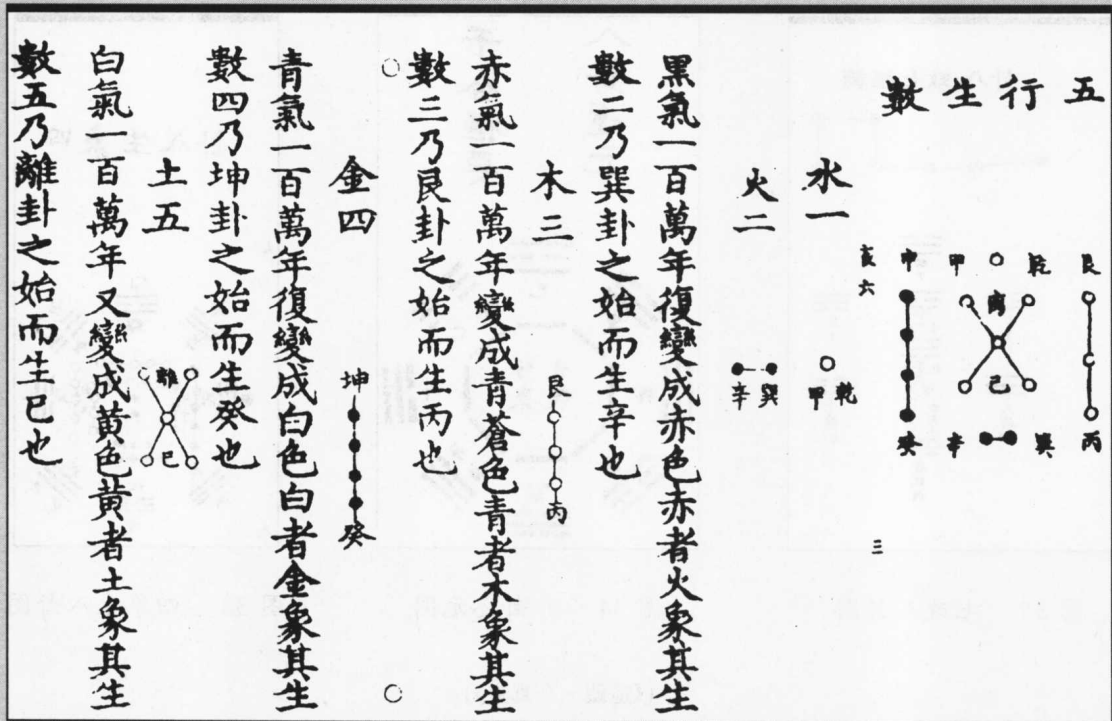 五行生數
艮
丙
乾
巽
己
甲
辛
癸
六
三
水一
乾
甲
火二
巽
辛
黑氣一百萬年復變成赤色赤者火象其生
數二乃巽卦之始而生辛也
木三
艮
丙
赤氣一百萬年變成青蒼色青者木象其生
數三乃艮卦之始而生丙也
金四
坤
癸
青氣一百萬年復變成白色白者金象其生
數四乃坤卦之始而生癸也
土五
離
己
白氣一百萬年又變成黃色黃者土象其生
數五乃離卦之始而生己也